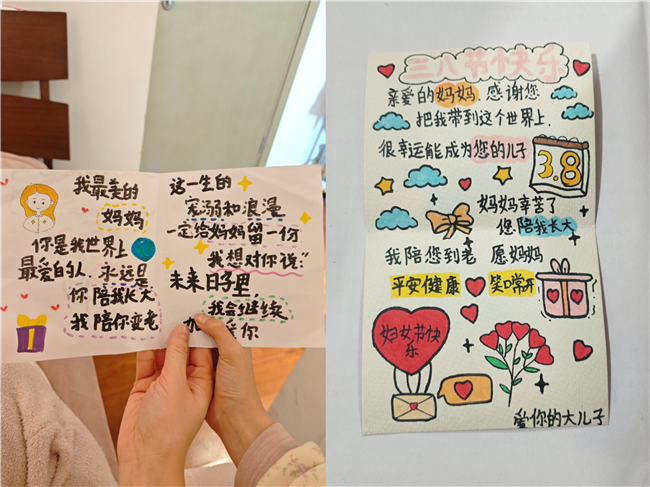 我最美的
妈妈
你是我世界上
最爱的人.永远是
你陪我长大
我陪你变老
1
这一生的
宠溺和浪漫
一定给妈妈留一份
我想对你说:"
未来日子里
我会继续
你
三八节快乐
亲爱的妈妈.感谢您
把我带到这个世界上.
很幸运能成为您的儿子
3.8
妈妈辛苦了
您陪我长大
我陪您到老 愿妈妈
平安健康 笑口常开
妇女节快
乐
爱你的大儿子